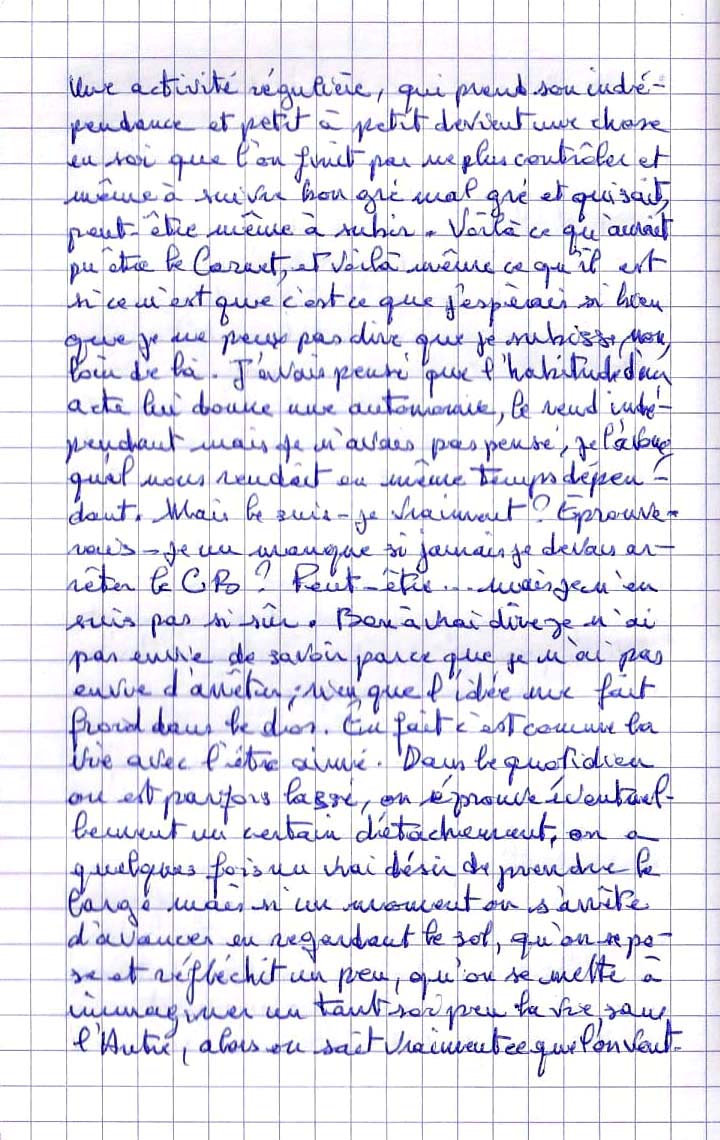 Une activité régulière, qui prend son indé-
pendance et petit à petit devient une chose
en soi que l'on finit par ne plus contrôler et
même à suivre bon gré mal gré et qui sait,
peut-être même à subir. Voilà ce qu'aurait
pu être le Carnet, et voilà même ce qu'il est
si ce n'est que c'est ce que j'espérais si bien
que je ne peux pas dire que je subisse, non,
loin de là. J'avais pensé que l'habitude d'un
acte lui donne une autonomie, le rend indé-
pendant mais je n'avais pas pensé, je l'avoue
qu'il nous rendait en même temps dépen-
dant. Mais le suis-je vraiment? Éprouve-
rais-je un manque si jamais je devais ar-
rêter le CPB? Peut-être... mais je n'en
suis pas si sûr. Bon à vrai dire je n'ai
pas envie de savoir parce que je n'ai pas
envie d'arrêter; rien que l'idée me fait
froid dans le dos. En fait c'est comme la
vie avec l'être aimé. Dans le quotidien
on est parfois lassé, on éprouve éventuel-
lement un certain détachement, on a
quelques fois un vrai désir de prendre le
large mais si un moment on s'arrête
d'avancer en regardant le sol, qu'on se po-
se et réfléchit un peu, qu'on se mette à
immaginer un tant soi peu la vie sans
l'Autre, alors on sait vraiment ce que l'on veut.